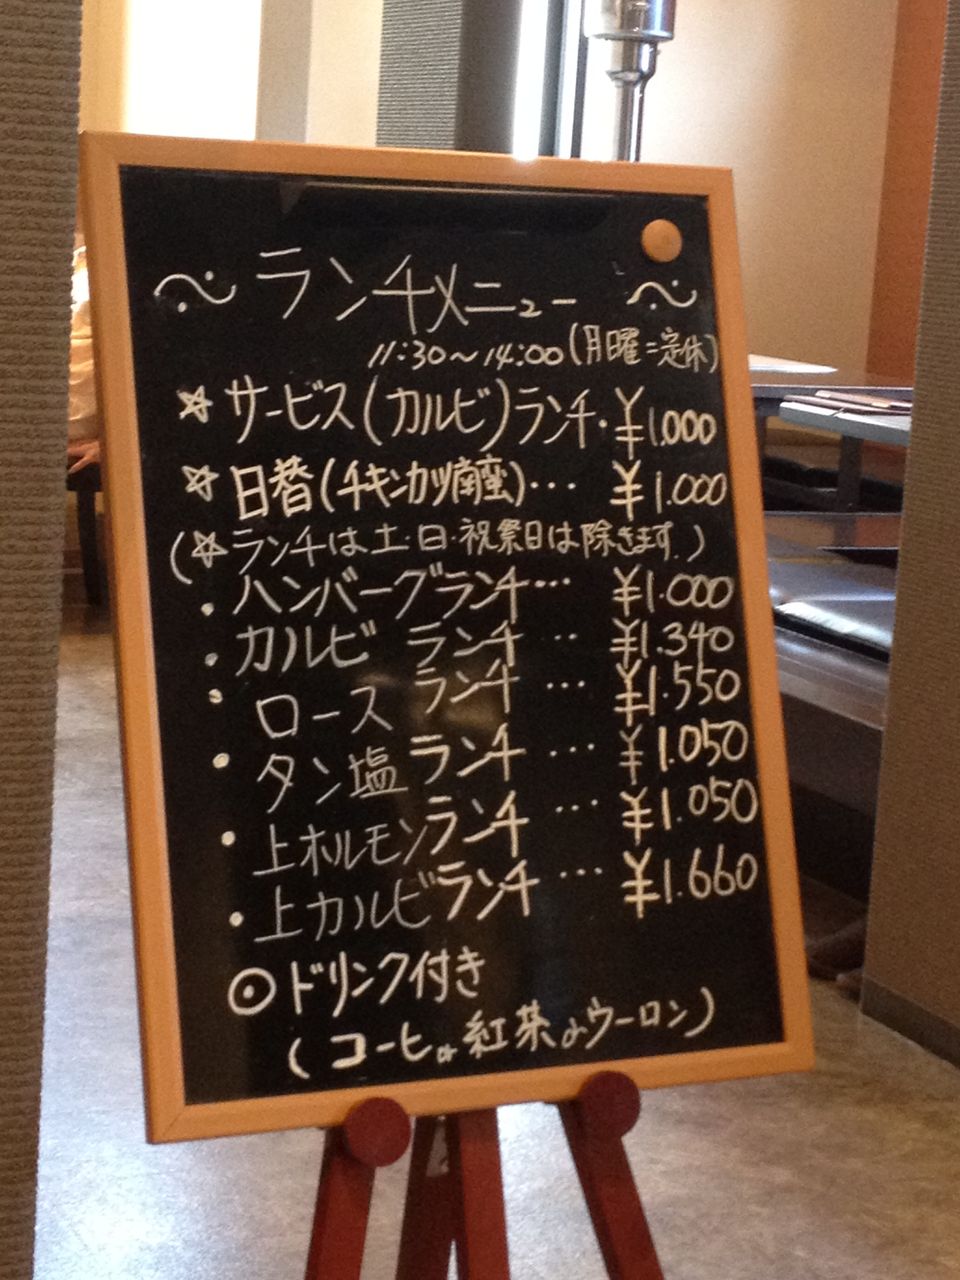 〜ランチメニュー〜
11:30〜14:00(月曜=定休)
☆サービス(カルビ)ランチ・¥1.000
☆日替(チキンカツ南蛮)…¥1.000
(☆ランチは土・日・祝祭日は除きます。)
・ハンバーグランチ…¥1.000
・カルビ ランチ‥¥1.340
・ロース ランチ…¥1.550
・タン塩 ランチ…¥1.050
・上ホルモンランチ…¥1.050
・上カルビランチ…¥1.660
◎ドリンク付き
(コーヒor紅茶orウーロン)